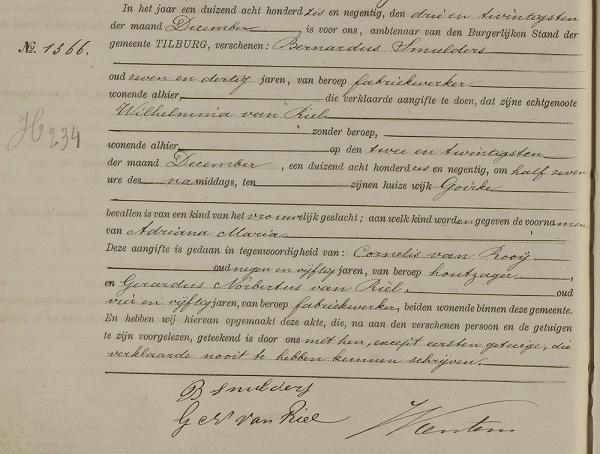 In het jaar een duizend acht honderd zes en negentig, den drie en twintigsten
der maand December is voor ons, ambtenaar van den Burgerlijken Stand der
No. 1366.
gemeente TILBURG, verschenen: Bernardus Smulders
oud zeven en dertig jaren, van beroep fabriekwerker
wonende alhier, die verklaarde aangifte te doen, dat zijne echtgenoote
Wilhelmina van Riel
zonder beroep,
H 234
wonende alhier op den twee en twintigsten
der maand December, een duizend acht honderd zes en negentig, om half zeven
ure des namiddags, ten zijnen huize wijk Goirke
bevallen is van een kind van het vrouwelijk geslacht; aan welk kind worden gegeven de voornamen
van Adriana Maria
Deze aangifte is gedaan in tegenwoordigheid van: Cornelis van Rooij
oud negen en vijftig jaren, van beroep houtzager,
en Gerardus Norbertus van Riel, oud
vier en vijftig jaren, van beroep fabriekwerker, beiden wonende binnen deze gemeente.
En hebben wij hiervan opgemaakt deze akte, die, na aan den verschenen persoon en de getuigen
te zijn voorgelezen, geteekend is door ons met hen, except eersten getuige, die
verklaarde nooit te hebben kunnen schrijven.
B Smulders
G N van Riel